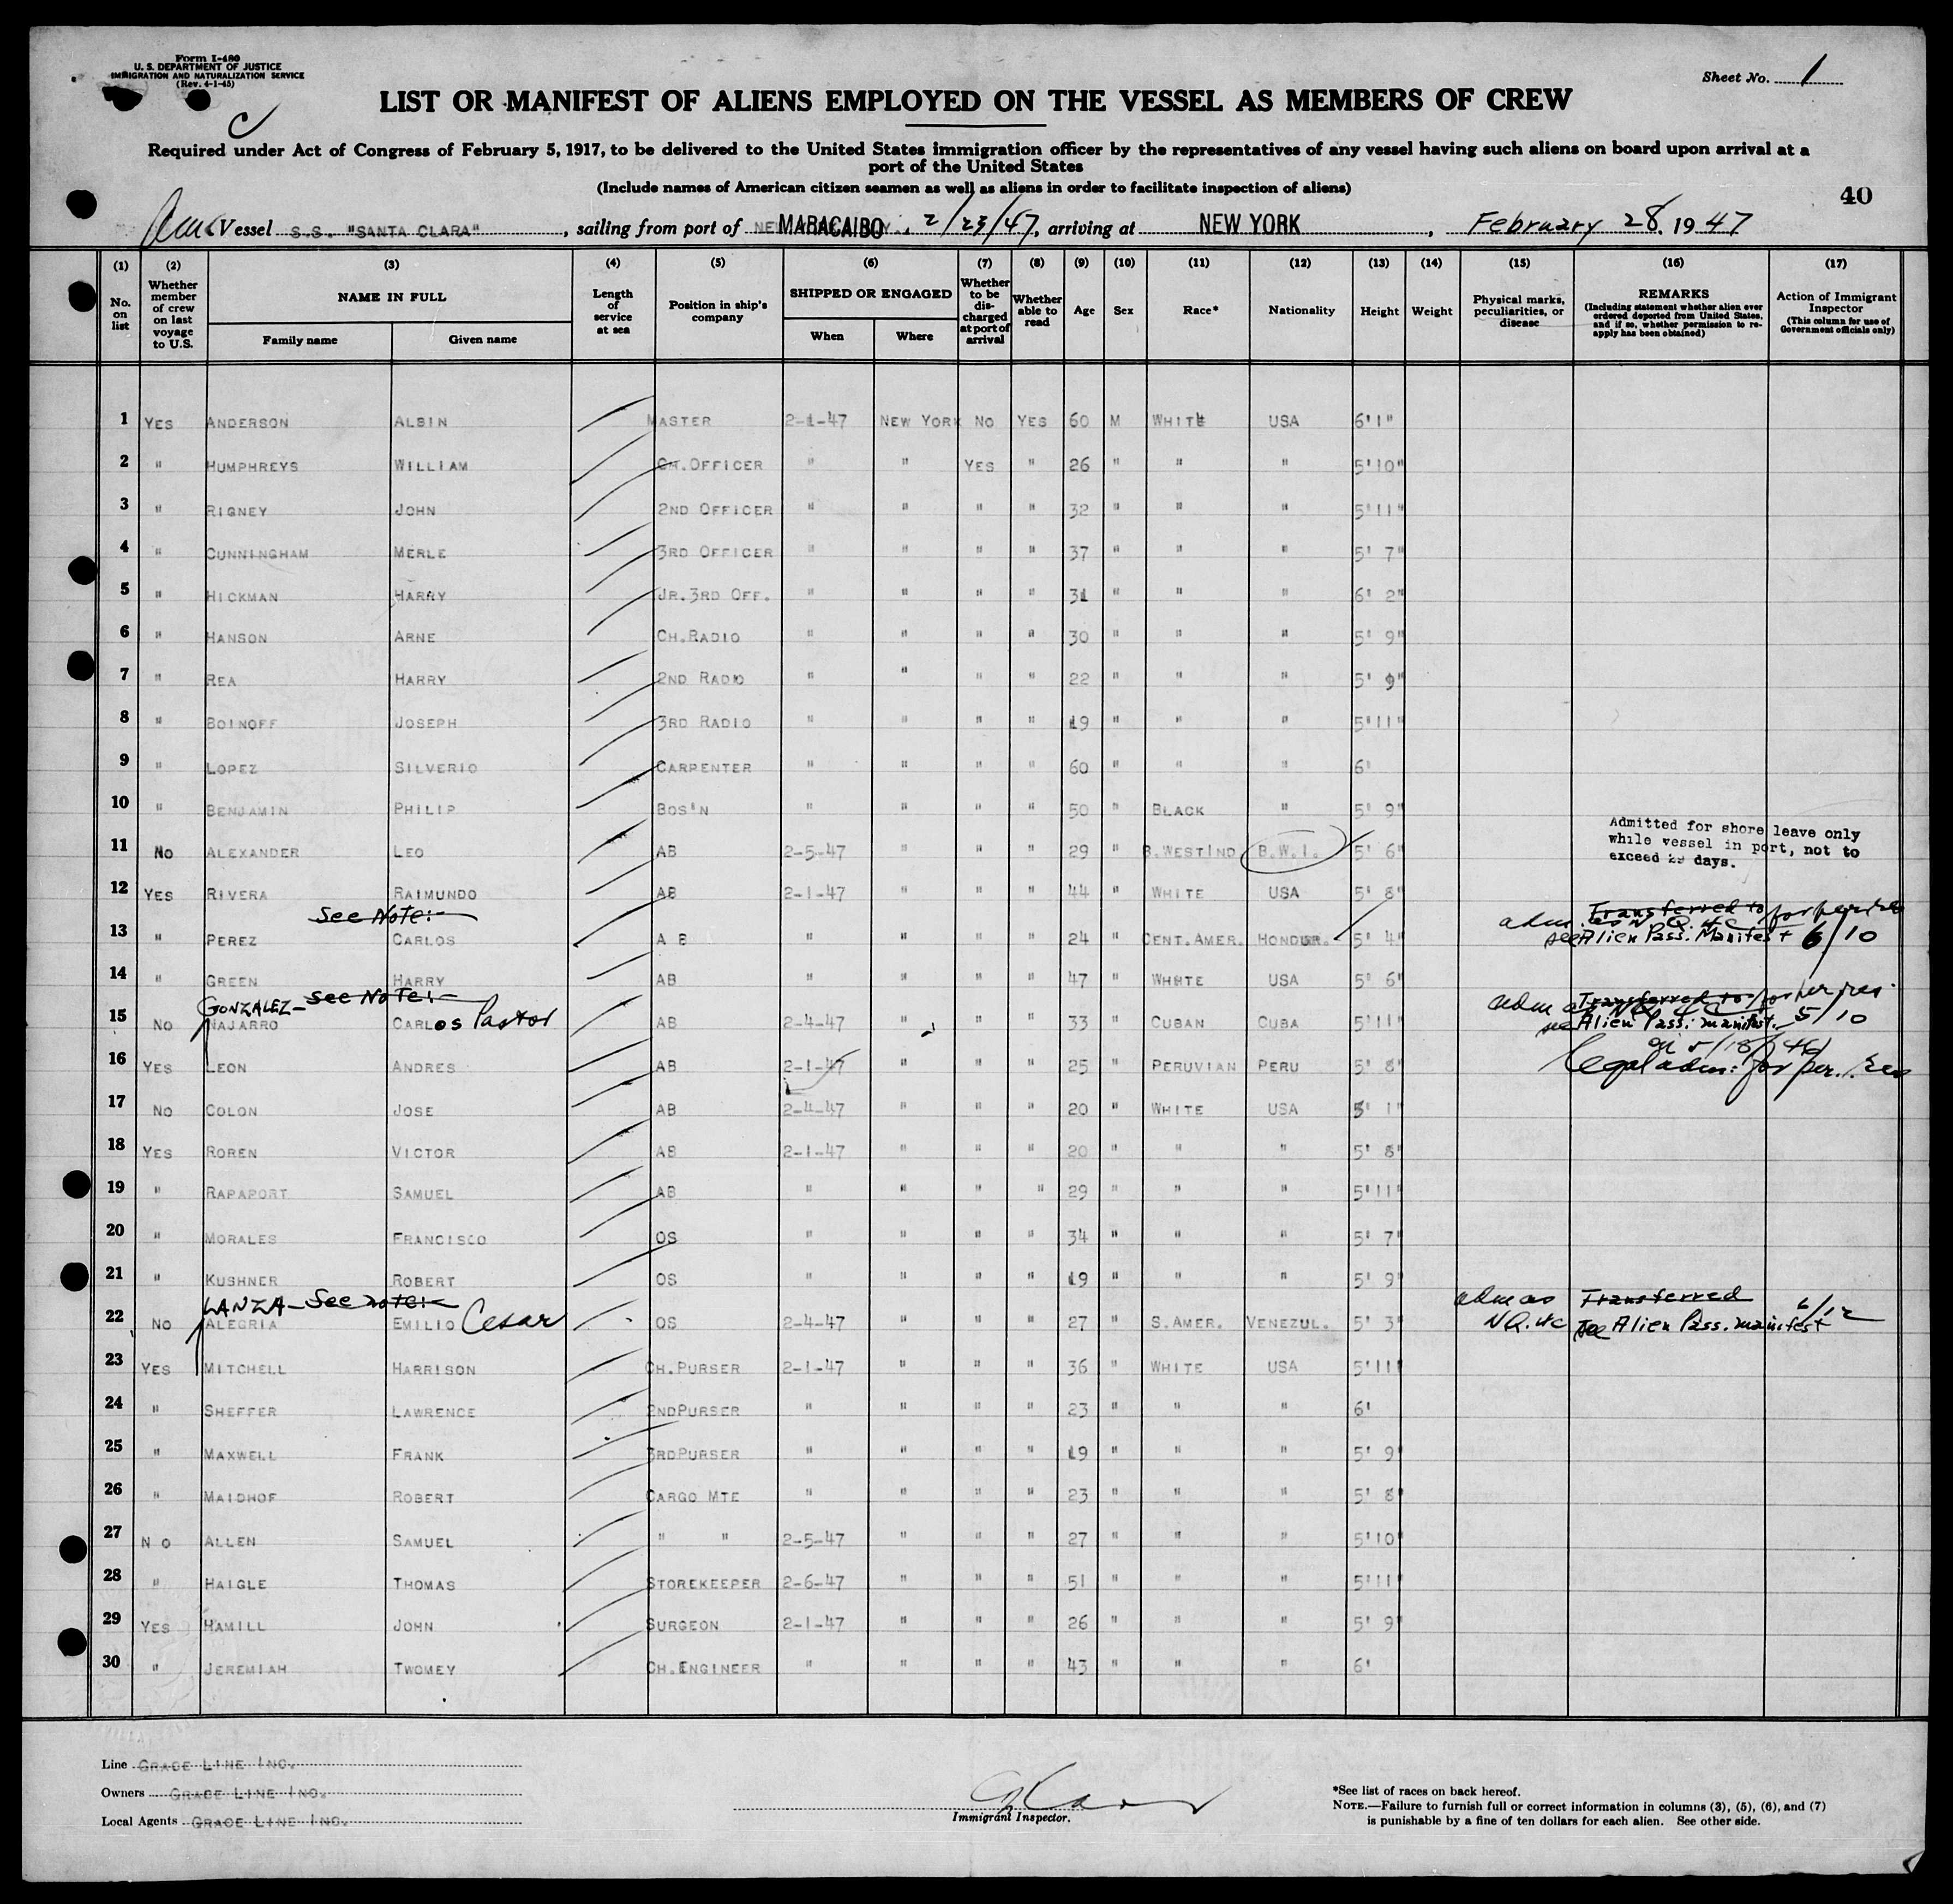 Form I-480
U. S. DEPARTMENT OF JUSTICE
IMMIGRATION AND NATURALIZATION SERVICE
(Rev. 4-1-45)
Sheet No. 1
LIST OR MANIFEST OF ALIENS EMPLOYED ON THE VESSEL AS MEMBERS OF CREW
Required under Act of Congress of February 5, 1917, to be delivered to the United States immigration officer by the representatives of any vessel having such aliens on board upon arrival at a
port of the United States
(Include names of American citizen seamen as well as aliens in order to facilitate inspection of aliens)
40
Vessel S.S. "SANTA CLARA", sailing from port of MARACAIBO, 2/23/47, arriving at NEW YORK, February 28, 1947
(1) (2) (3) (4) (5) (6) (7) (8) (9) (10) (11) (12) (13) (14) (15) (16) (17)
No. on list
Whether member of crew on last voyage to U.S.
NAME IN FULL
Family name Given name
Length of service at sea
Position in ship's company
SHIPPED OR ENGAGED
When Where
Whether to be discharged at port of arrival
Whether able to read
Age
Sex
Race*
Nationality
Height
Weight
Physical marks, peculiarities, or disease
REMARKS
(Including statement whether alien ever ordered deported from United States, and if so, whether permission to reapply has been obtained)
Action of Immigrant Inspector
(This column for use of Government officials only)
1 YES ANDERSON ALBIN MASTER 2-1-47 NEW YORK NO YES 60 M WHITE USA 6'1"
2 " HUMPHREYS WILLIAM CH.OFFICER " " YES " 26 " " " 5'10"
3 " RIGNEY JOHN 2ND OFFICER " " " " 32 " " " 5'11"
4 " CUNNINGHAM MERLE 3RD OFFICER " " " " 37 " " " 5' 7"
5 " HICKMAN HARRY JR.3RD OFF. " " " " 31 " " " 6' 2"
6 " HANSON ARNE CH.RADIO " " " " 30 " " " 5' 9"
7 " REA HARRY 2ND RADIO " " " " 22 " " " 5' 9"
8 " BOINOFF JOSEPH 3RD RADIO " " " " 19 " " " 5'11"
9 " LOPEZ SILVERIO CARPENTER " " " " 60 " " " 6'
10 " BENJAMIN PHILIP BOS'N " " " " 50 " BLACK " 5' 9"
11 NO ALEXANDER LEO AB 2-5-47 " " " 29 " B.WESTIND B.W.I. 5' 6" Admitted for shore leave only
while vessel in port, not to
exceed 29 days.
12 YES RIVERA RAIMUNDO AB 2-1-47 " " " 44 " WHITE USA 5' 8"
See Note:- Transferred to for per res
13 " PEREZ CARLOS A B " " " " 24 " CENT.AMER. HONDUR. 5' 4" adm as N.Q. 4c see Alien Pass. Manifest 6/10
14 " GREEN HARRY AB " " " " 47 " WHITE USA 5' 6"
GONZALEZ- See Note:- Transferred to for per res.
15 NO NAJARRO CARLOS Pastor AB 2-4-47 " " " 33 " CUBAN CUBA 5'11" adm as NQ 4c see Alien Pass. manifest 5/10
16 YES LEON ANDRES AB 2-1-47 " " 25 " PERUVIAN PERU 5' 8" on 5/18/46 legal adm: for per. res
17 NO COLON JOSE AB 2-4-47 " " " 20 " WHITE USA 5' 1"
18 YES ROREN VICTOR AB 2-1-47 " " " 20 " " " 5' 8"
19 " RAPAPORT SAMUEL AB " " " " 29 " " " 5'11"
20 " MORALES FRANCISCO OS " " " " 34 " " " 5' 7"
21 " KUSHNER ROBERT OS " " " " 19 " " " 5' 9"
LANZA- See note:- Transferred
22 NO ALEGRIA EMILIO Cesar OS 2-4-47 " " " 27 " S.AMER. VENEZUL. 5' 3" adm as NQ. 4c see Alien Pass. manifest 6/12
23 YES MITCHELL HARRISON CH.PURSER 2-1-47 " " " 36 " WHITE USA 5'11"
24 " SHEFFER LAWRENCE 2NDPURSER " " " " 23 " " " 6'
25 " MAXWELL FRANK 3RDPURSER " " " " 19 " " " 5' 9"
26 " MAIDHOF ROBERT CARGO MTE " " " " 23 " " " 5' 8"
27 NO ALLEN SAMUEL " " 2-5-47 " " " 27 " " " 5'10"
28 " HAIGLE THOMAS STOREKEEPER 2-6-47 " " " 51 " " " 5'11"
29 YES HAMILL JOHN SURGEON 2-1-47 " " " 26 " " " 5' 9"
30 " JEREMIAH TWOMEY CH.ENGINEER " " " " 43 " " " 6'
Line GRACE LINE INC.
Owners GRACE LINE INC.
Local Agents GRACE LINE INC.
Immigrant Inspector.
*See list of races on back hereof.
NOTE.—Failure to furnish full or correct information in columns (3), (5), (6), and (7)
is punishable by a fine of ten dollars for each alien. See other side.